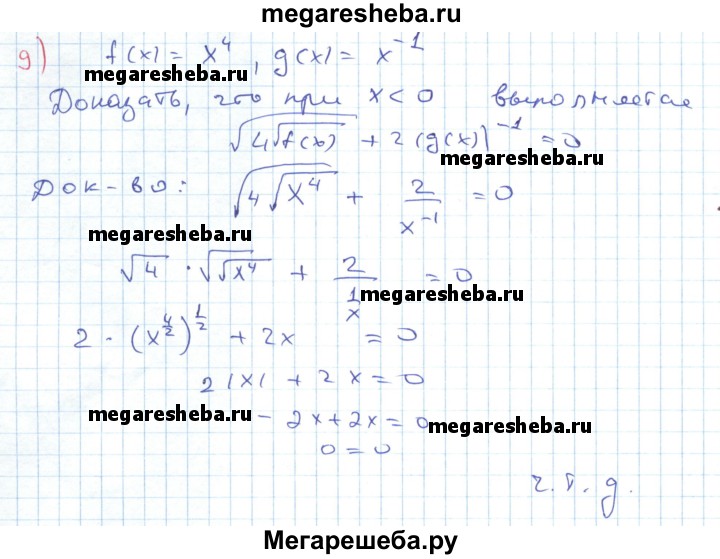 megaresheba.ru
g) f(x) = x⁴, g(x) = x⁻¹
megaresheba.ru
Доказать, что при x < 0 выполняется
√(4√f(x)) + 2(g(x))⁻¹ = 0
megaresheba.ru
Док-во: √(4√x⁴) + 2/x⁻¹ = 0
megaresheba.ru
√4 · √√x⁴ + 2/(1/x) = 0
megaresheba.ru
2 · (x^(4/2))^(1/2) + 2x = 0
2|x| + 2x = 0
megaresheba.ru - 2x + 2x = 0 megaresheba.ru
0 = 0
ч.т.д.
Мегарешеба.ру